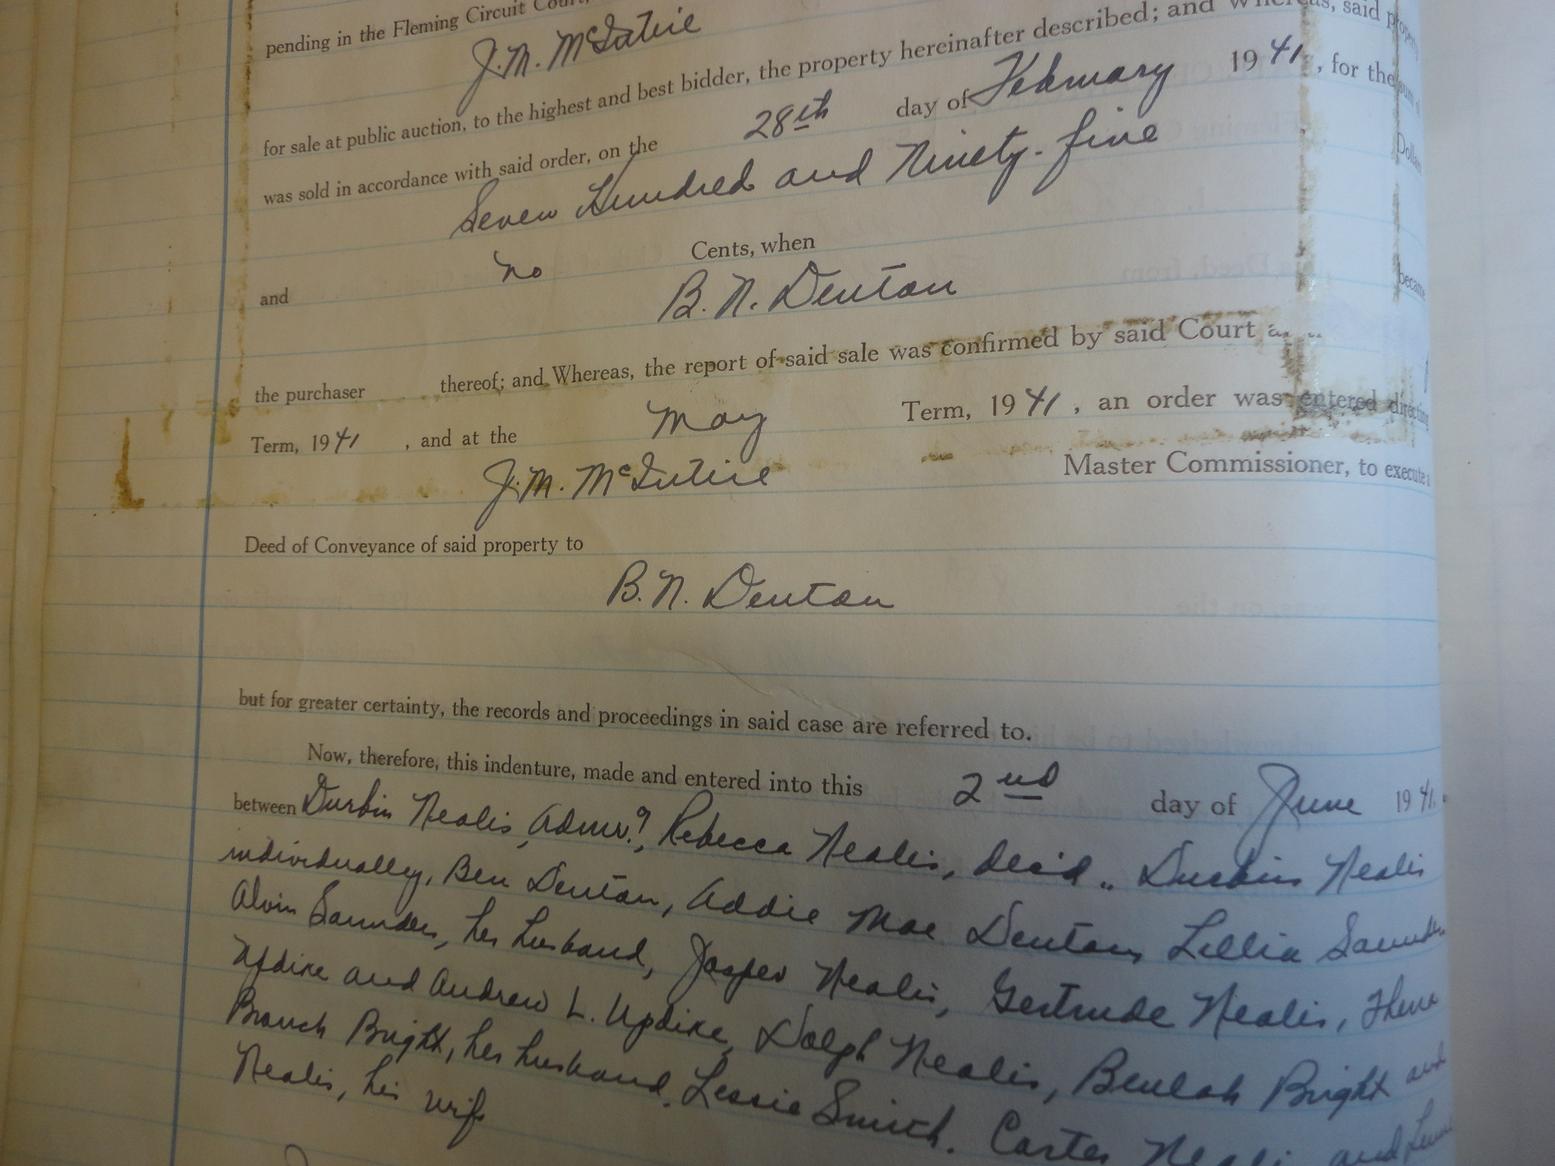 pending in the Fleming Circuit Court,
J. M. McIntire
for sale at public auction, to the highest and best bidder, the property hereinafter described; and Whereas, said property
was sold in accordance with said order, on the 28th day of February 1941, for the sum of
Seven Hundred and Ninety-five Dolla
and no Cents, when
B. N. Denton became
the purchaser thereof; and Whereas, the report of said sale was confirmed by said Court a
Term, 1941, and at the May Term, 1941, an order was entered directing
J. M. McIntire Master Commissioner, to execute a
Deed of Conveyance of said property to
B. N. Denton
but for greater certainty, the records and proceedings in said case are referred to.
Now, therefore, this indenture, made and entered into this 2nd day of June 1941.
between Durbin Nealis, Admr., Rebecca Nealis, Dec'd., Durbin Nealis
individually, Ben Denton, Addie Mae Denton, Lillia Saunders
Alvin Saunders, her husband, Jasper Nealis, Gertrude Nealis,
Updike and Andrew L. Updike, Dolph Nealis, Beulah Bright and
Branch Bright, her husband, Lessie Smith, Carter Nealis and
Nealis, his wife